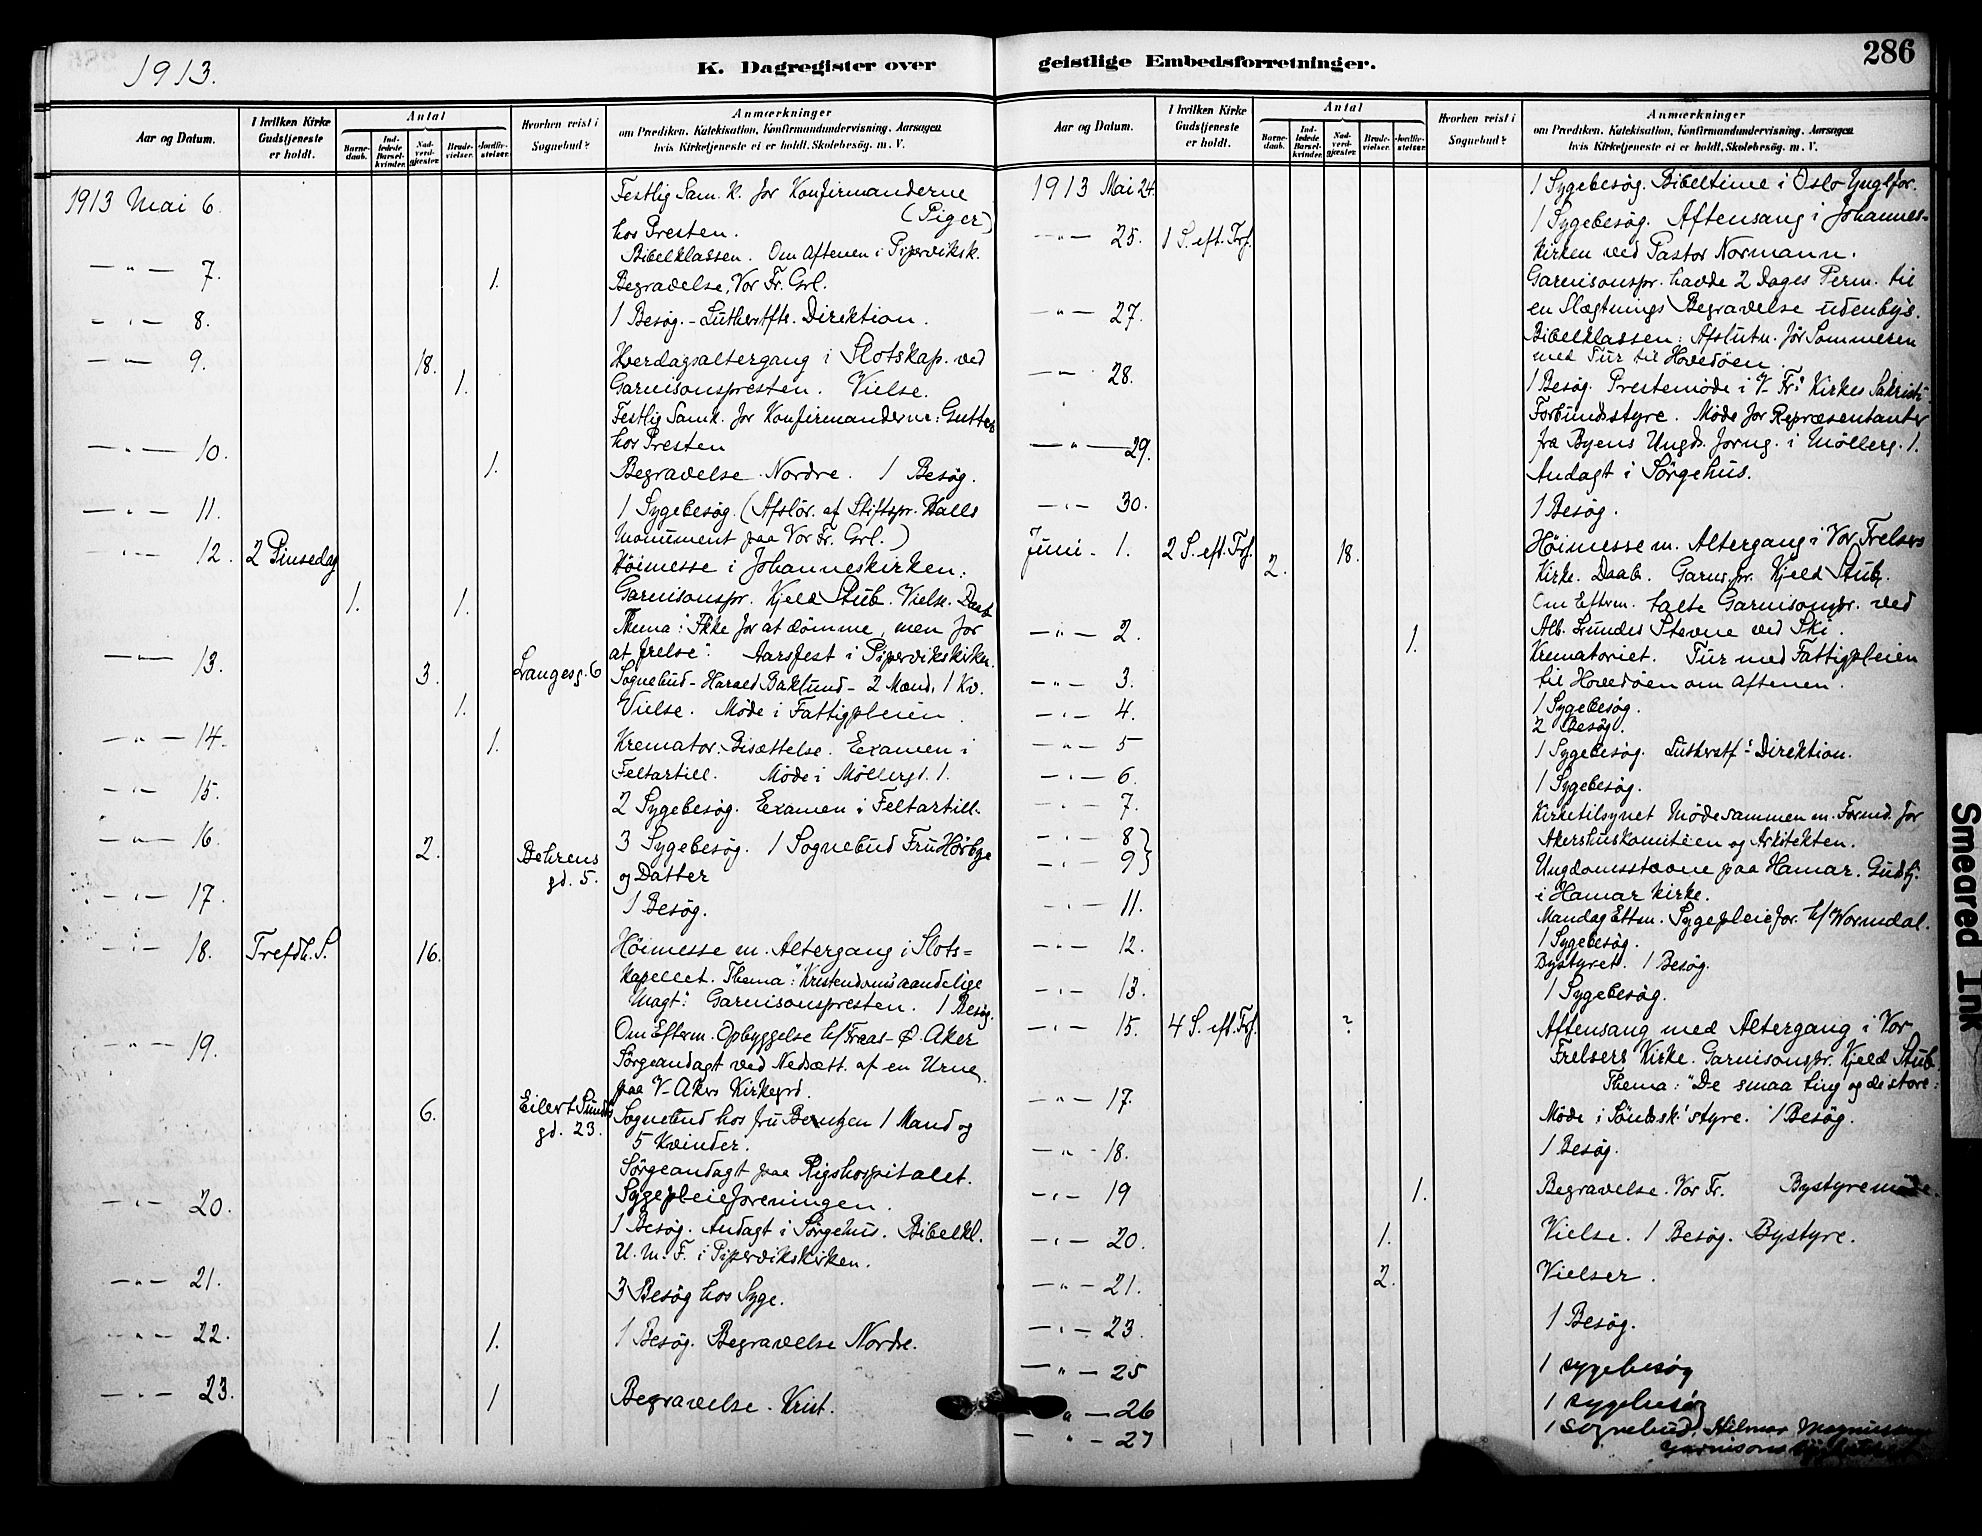 1913.
K. Dagregister over
Aar og Datum.
I hvilken Kirke Gudstjeneste er holdt.
Antal
Barnedaab.
Indledede Barselkvinder.
Nadverdgjester.
Brudevielser.
Jordfæstelser.
Hvorhen reist i Sognebud?
Anmærkninger
om Prædiken, Katekisation, Konfirmandundervisning, Aarsagen
hvis Kirketjeneste ei er holdt, Skolebesøg, m. V.
1913 Mai 6. Festlig Sam. k. for Konfirmanderne
(Piger)
hos Presten.
Bibelklassen. Om Aftenen i Piperviksk.
— " — 7. 1. Begravelse, Vor Fr. Grl.
— " — 8. 1 Besøg. – Lutherstfts. Direktion.
— " — 9. 18. Hverdagsaltergang i Slotskap. ved
1. Garnisonspresten. Vielse.
Festlig Samk. for Konfirmanderne: Gutter
hos Presten
— " — 10. 1. Begravelse Nordre. 1 Besøg.
— " — 11. 1 Sygebesøg. (Afslør. af Stiftspr. Halls
Monument paa Vor Fr. Grl.)
— " — 12. 2 Pinsedag Høimesse i Johanneskirken:
1. 1. Garnisonspr. Kjeld Stub. Vielse. Daab
Thema: Ikke for at dømme, men for
at frelse". Aarsfest i Pipervikskirken.
— " — 13. 3. Langesg. 6 Sognebud – Harald Baklund – 2 Mænd, 1 Kv.
1. Vielse. Møde i Fattigpleien.
— " — 14. 1. Kremator. Bisættelse. Examen i
Feltartill. Møde i Møllergd. 1.
— " — 15. 2 Sygebesøg. Examen i Feltartill.
— " — 16. 2. Behrens gd. 5. 3 Sygebesøg. 1 Sognebud Fru Hørbye
og Datter
— " — 17. 1 Besøg.
— " — 18. Trefdh. S. 16. Høimesse m. Altergang i Slots=
kapellet. Thema: "Kristendoms aandelige
Magt". Garnisonspresten. 1 Besøg.
Om Efterm. Opbyggelse h/ Fraas – Ø. Aker
— " — 19. Sørgeandagt ved Nedsætt. af en Urne
paa V– Akers Kirkegrd.
6. Eilert Sunds gd. 23. Sognebud hos fru Bentzen 1 Mand og
5 Kvinder.
Sørgeandagt paa Rigshospitalet.
Sygepleieforeningen.
— " — 20. 1 Besøg. Andagt i Sørgehus. Bibelkl.
U. M. F. i Pipervikskirken.
— " — 21. 3 Besøg hos Syge.
— " — 22. 1. 1 Besøg. Begravelse Nordre.
— " — 23. 1 Begravelse. Krist.
geistlige Embedsforretninger.
286
Aar og Datum.
I hvilken Kirke Gudstjeneste er holdt.
Antal
Barnedaab.
Indledede Barselkvinder.
Nadverdgjester.
Brudevielser.
Jordfæstelser.
Hvorhen reist i Sognebud?
Anmærkninger
om Prædiken, Katekisation, Konfirmandundervisning, Aarsagen
hvis Kirketjeneste ei er holdt, Skolebesøg, m. V.
1913 Mai 24. 1 Sygebesøg. Bibeltime i Oslo Ynglfor.
1 Sygebesøg. Aftensang i Johannes–
— " — 25. 1 S. eft. Trf. Kirken ved Pastor Normann.
Garnisonspr. havde 2 Dages Perm. til
— " — 27. en Slægtnings Begravelse udenbys.
Bibelklassen: Afslutn. før Sommeren
med Tur til Hovedøen
— " — 28. 1 Besøg. Prestemøde i V– Fr: Kirkes Sakristi
Forbundsstyre. Møde for Repræsentanter
— " — 29. fra Byens Ungd. forng. i Møllerg. 1.
Andagt i Sørgehus.
— " — 30. 1 Besøg.
Juni – 1. 2 S. eft. Trf. 2. 18. Høimesse m. Altergang i Vor Frelsers
Kirke. Daab. Garns. pr. Kjeld Stub.
Om Efterm. talte Garnisonspr. ved
Alb. Lundes Stevne ved Ski.
— " — 2. 1. Krematoriet. Tur med Fattigpleien
til Hovedøen om Aftenen.
— " — 3. 1 Sygebesøg.
— " — 4. 2 Besøg.
— " — 5 1 Sygebesøg. Lutherstf: Direktion.
— " — 6. 1 Sygebesøg.
— " — 7. Kirketilsynet Møde sammen m. Formd. for
Akershuskomiteen og Arkitekten.
— " — 8 } Ungdomsstævne paa Hamar. Gudtj.
— " — 9 } i Hamar Kirke.
Mandag Ettm. Sygepleiefor. h/ Wormdal.
— " — 11. 1 Sygebesøg.
— " — 12. Bystyret. 1 Besøg.
— " — 13. 1 Sygebesøg.
— " — 15. 4 S. eft. Trf. ? Aftensang med Altergang i Vor
Frelsers Kirke. Garnisonspr. Kjeld Stub.
Thema: "De smaa ting og de store".
— " — 17. Møde i Søndssk. styre. 1 Besøg.
— " — 18. 1 Besøg.
— " — 19 1. Begravelse. Vor Fr. Bystyremøde.
— " — 20. 1. Vielse. 1 Besøg. Bystyre.
— " — 21. 2. Vielser.
— " — 23. 1 Besøg.
— " — 25 1 sygebesøg
" — 26 1 sygebesøg
— " — 27 1 sognebud. Hilmar Magnussen
Smeared Ink